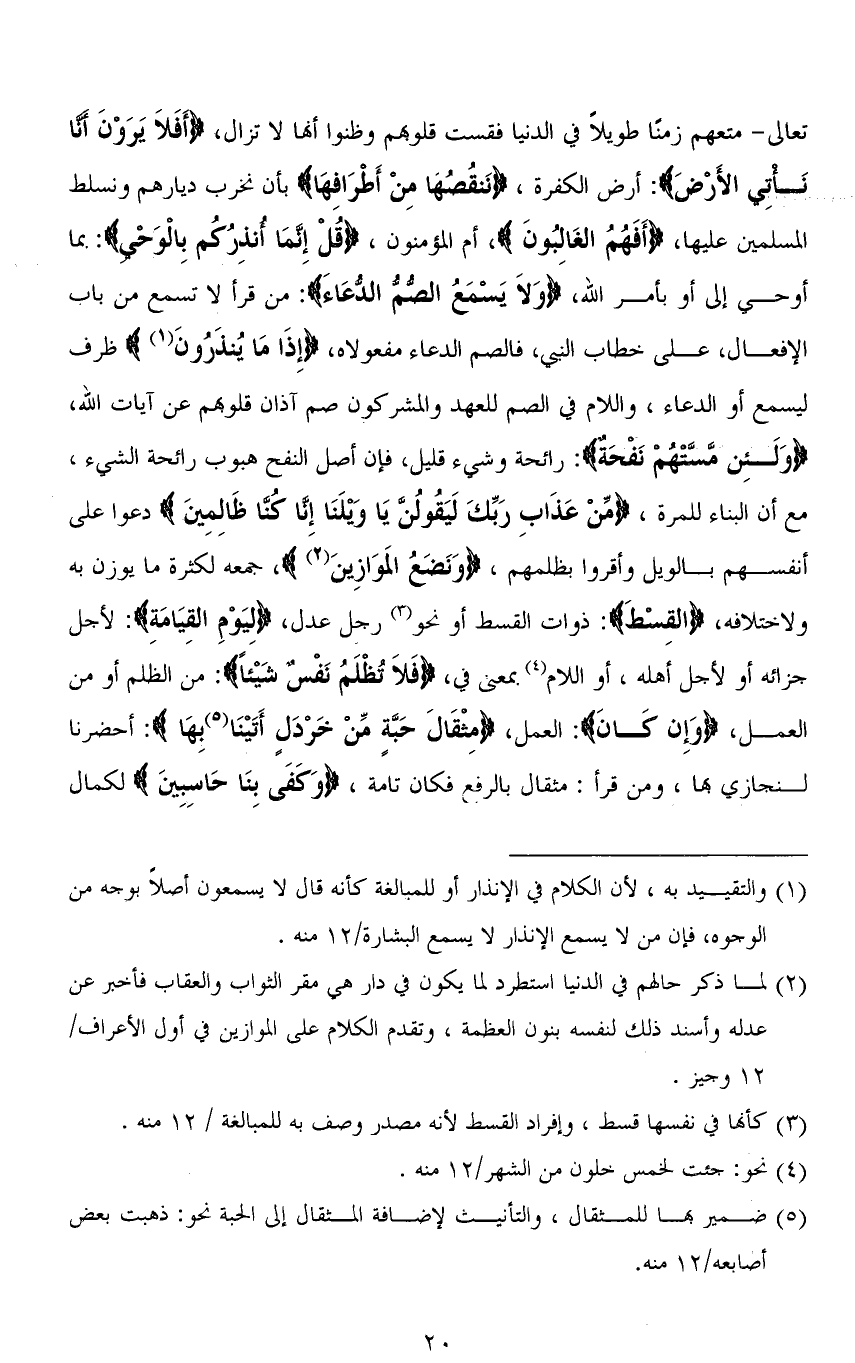 تعالى- متعهم زمنًا طويلاً في الدنيا فقست قلوبهم وظنوا أنها لا تزال، ﴿أَفَلاَ يَرَوْنَ أَنَّا
نَــأْتِي الأَرْضَ﴾: أرض الكفرة ، ﴿نَنقُصُهَا مِنْ أَطْرَافِهَا﴾ بأن نخرب ديارهم ونسلط
المسلمين عليها، ﴿أَفَهُمُ الغَالِبُونَ ﴾، أم المؤمنون ، ﴿قُلْ إِنَّمَا أُنذِرُكُم بِالْوَحْيِ﴾: بما
أوحــي إلى أو بأمــر الله، ﴿وَلاَ يَسْمَعُ الصُّمُّ الدُّعَاءَ﴾: من قرأ لا تسمع من باب
الإفعــال، علــى خطاب النبي، فالصم الدعاء مفعولاه، ﴿إِذَا مَا يُنذَرُونَ(١) ﴾ ظرف
ليسمع أو الدعاء ، واللام في الصم للعهد والمشركون صم آذان قلوبهم عن آيات الله،
﴿وَلَــئِن مَّسَّتْهُمْ نَفْحَةٌ﴾: رائحة وشيء قليل، فإن أصل النفح هبوب رائحة الشيء ،
مع أن البناء للمرة ، ﴿مِّنْ عَذَابِ رَبِّكَ لَيَقُولُنَّ يَا وَيْلَنَا إِنَّا كُنَّا ظَالِمِينَ ﴾ دعوا على
أنفســهم بــالويل وأقروا بظلمهم ، ﴿وَنَضَعُ المَوَازِينَ(٢) ﴾، جمعه لكثرة ما يوزن به
ولاختلافه، ﴿القِسْطَ﴾: ذوات القسط أو نحو(٣) رجل عدل، ﴿لِيَوْمِ القِيَامَةِ﴾: لأجل
جزائه أو لأجل أهله ، أو اللام(٤) بمعنى في، ﴿فَلاَ تُظْلَمُ نَفْسٌ شَيْئاً﴾: من الظلم أو من
العمــل، ﴿وَإِن كَــانَ﴾: العمل، ﴿مِثْقَالَ حَبَّةٍ مِّنْ خَرْدَلٍ أَتَيْنَا(٥)بِهَا ﴾: أحضرنا
لــنجازي بها ، ومن قرأ : مثقال بالرفع فكان تامة ، ﴿وَكَفَى بِنَا حَاسِبِينَ ﴾ لكمال
(١) والتقييــد به ، لأن الكلام في الإنذار أو للمبالغة كأنه قال لا يسمعون أصلاً بوجه من
الوجوه، فإن من لا يسمع الإنذار لا يسمع البشارة/١٢ منه .
(٢) لمــا ذكر حالهم في الدنيا استطرد لما يكون في دار هي مقر الثواب والعقاب فأخبر عن
عدله وأسند ذلك لنفسه بنون العظمة ، وتقدم الكلام على الموازين في أول الأعراف/
١٢ وجيز .
(٣) كأنها في نفسها قسط ، وإفراد القسط لأنه مصدر وصف به للمبالغة / ١٢ منه .
(٤) نحو: جئت لخمس خلون من الشهر/١٢ منه .
(٥) ضــمير بهــا للمــثقال ، والتأنيــث لإضــافة المــثقال إلى الحبة نحو: ذهبت بعض
أصابعه/١٢ منه.
٢٠